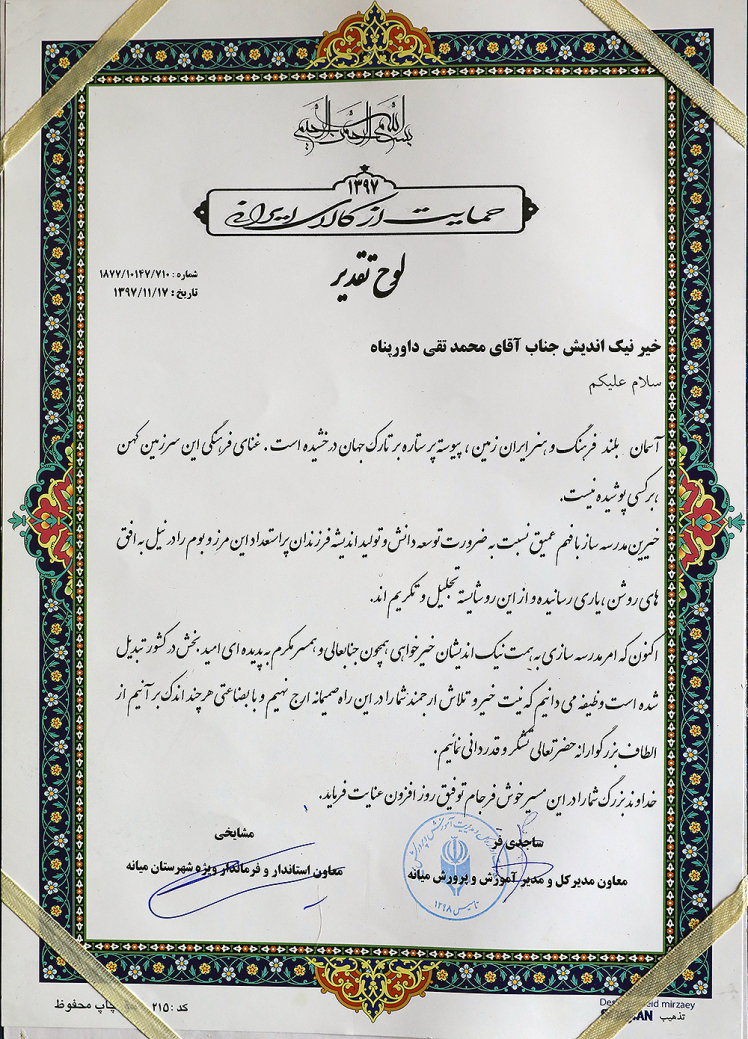 بسم الله الرحمن الرحیم
۱۳۹۷
حمایت از کالای ایرانی
لوح تقدیر
شماره : ۱۸۷۷/۱۰۱۴۷/۷۱۰
تاریخ : ۱۳۹۷/۱۱/۱۷
خیر نیک اندیش جناب آقای محمد تقی داورپناه
سلام علیکم
آسمان بلند فرهنگ و هنر ایران زمین ، پیوسته پر ستاره بر تارک جهان درخشیده است . غنای فرهنگی این سرزمین کهن
بر کسی پوشیده نیست.
خیرین مدرسه ساز با فهم عمیق نسبت به ضرورت توسعه دانش و تولید اندیشه فرزندان پراستعداد این مرز و بوم را در نیل به افق
های روشن ، یاری رسانیده و از این رو شایسته تجلیل و تکریم اند.
اکنون که امر مدرسه سازی به همت نیک اندیشان خیرخواهی همچون جنابعالی و همسر مکرم به پدیده ای امید بخش در کشور تبدیل
شده است وظیفه می دانیم که نیت خیر و تلاش ارجمند شما را در این راه صمیمانه ارج نهیم و با بضاعتی هر چند اندک بر آنیم از
الطاف بزرگوارانه حضرتعالی تشکر و قدردانی نمائیم.
خداوند بزرگ شما را در این مسیر خوش فرجام توفیق روز افزون عنایت فرماید.
ساجدی فر
معاون مدیر کل و مدیر آموزش و پرورش میانه
مشایخی
معاون استاندار و فرماندار ویژه شهرستان میانه
تاسیس ۱۲۹۸
کد : ۲۱۵
چاپ محفوظ
mirzaey
تذهیب